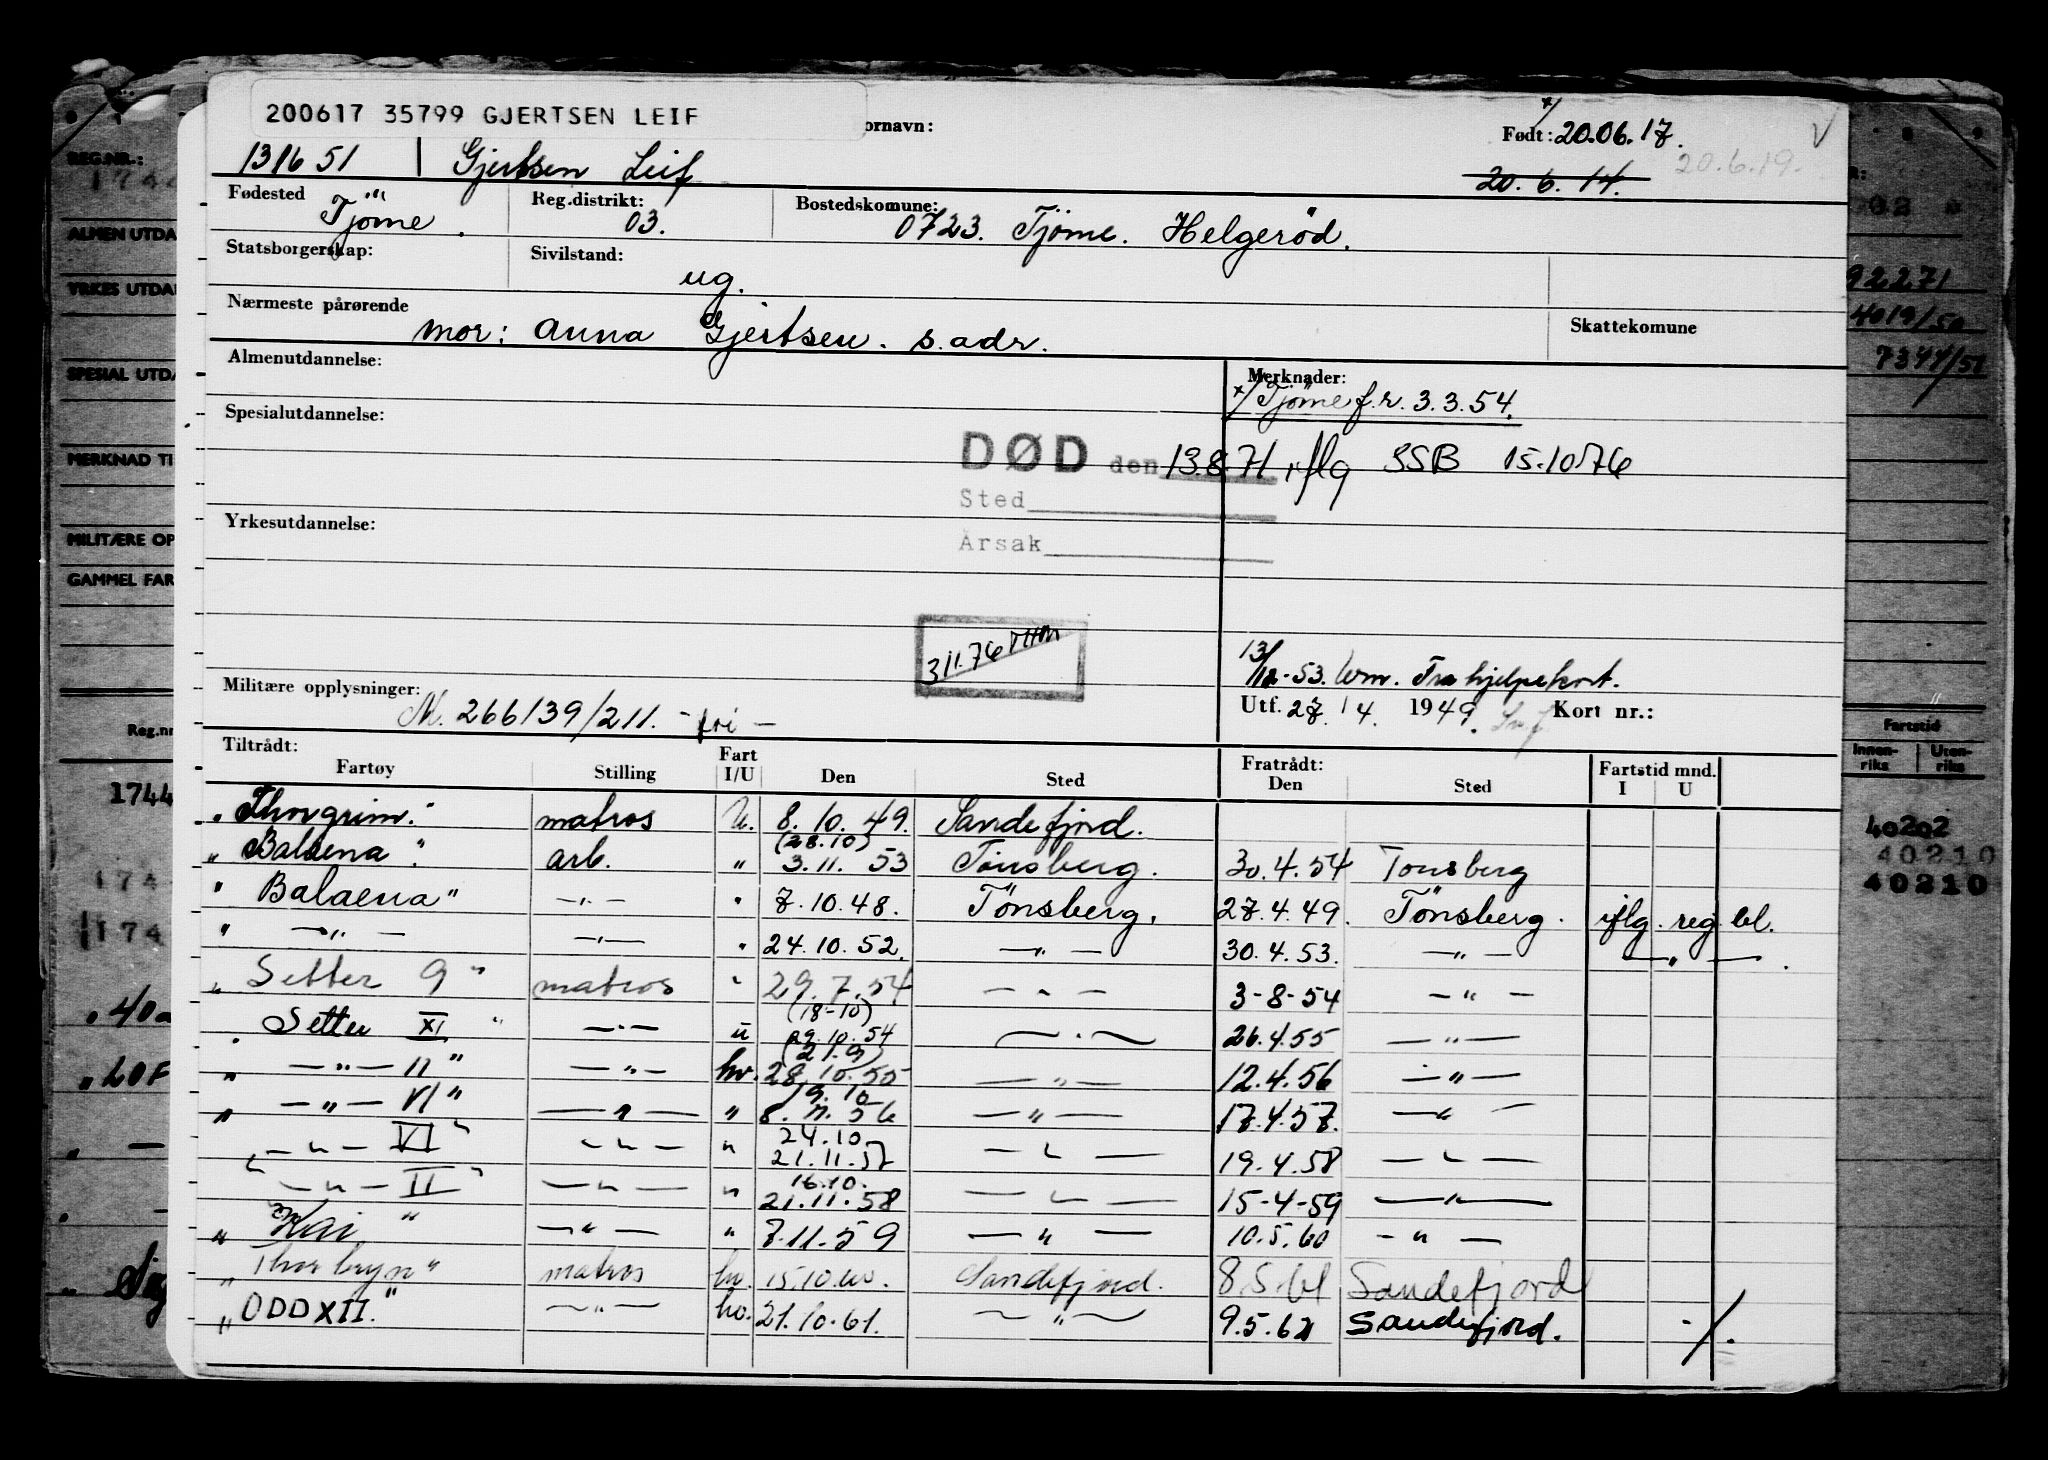 200617 35799 GJERTSEN LEIF
ornavn:
Født: 20.06.17.
131651 Gjertsen Leif
20.6.14. 20.6.19.
Fødested Tjöme.
Reg.distrikt: 03.
Bostedskomune: 0723. Tjöme. Helgeröd.
Statsborgerskap:
Sivilstand: ug.
Nærmeste pårørende mor: Anna Gjertsen. s.adr.
Skattekomune
Almenutdannelse:
Merknader:
x/ Tjöme f.r. 3.3.54.
Spesialutdannelse:
DØD den 13.8.71 iflg SSB 15.10.76
Sted
Årsak
Yrkesutdannelse:
311.76
13/12-53. Fra hjelpekort.
Militære opplysninger: M. 266139/211. - fri -
Utf. 27/4. 1949. Kort nr.:
Tiltrådt:
Fartøy Stilling Fart I/U Den Sted
Fratrådt: Den Sted Fartstid mnd. I U
"Thorgrim." matros U. 8.10.49. Sandefjord.
"Balaena". arb. " (28.10) 3.11.53 Tönsberg. 30.4.54 Tonsberg
"Balaena" -"- " 7.10.48. Tönsberg. 27.4.49. Tönsberg. iflg. reg. bl.
" -"- -"- " 24.10.52. -"- 30.4.53. -"- -"-.
"Setter 9" matros " 29.7.54 -"- 3-8-54 -"-
"Setter XI" -"- u (18-10) 29.10.54 -"- 26.4.55 -"-
" -"- 11" -"- hv. (21.9) 28.10.55 -"- 12.4.56 -"-
" -"- VI" -"- " 19.10 8.11.56 -"- 17.4.57. -"-
" -"- VI" -"- " 24.10. 21.11.57 -"- 19.4.58 -"-
" -"- II" -"- " 16.10. 21.11.58 -"- 15-4-59 -"-
"Kai" -"- " 7.11.59 -"- 10.5.60 -"-
"Thorbryn" matros hv. 15.10.60. Sandefjord. 8.5.61 Sandefjord
"ODD XII." -"- hv. 21.10.61. -"- 9.5.62 Sandefjord. -/.
REG.NR.:
ALMEN UTDA
YRKES UTDA
SPESIAL UTDA
MERKNAD TI
MILITÆRE OP
GAMMEL FAR
Reg.nr
1744
174
174
92271
4019/50
7344/51
Fartstid
Innen-riks Uten-riks
40202
40210
40210